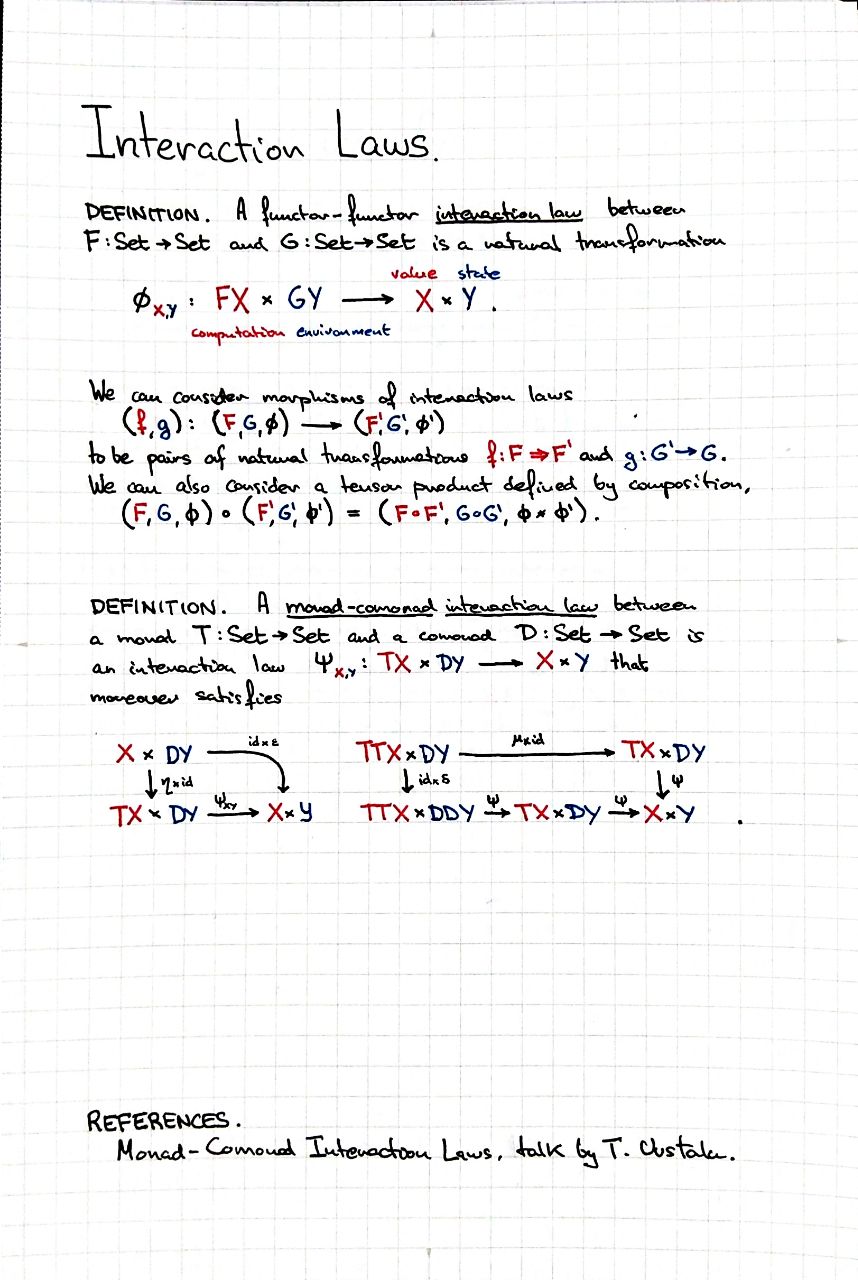 Interaction Laws.
DEFINITION. A functor-functor interaction law between
F:Set→Set and G:Set→Set is a natural transformation
value state
ϕ_X,Y : FX × GY ⟶ X × Y .
computation environment
We can consider morphisms of interaction laws
(f,g): (F,G,ϕ) ⟶ (F',G',ϕ')
to be pairs of natural transformations f:F⇒F' and g:G'→G.
We can also consider a tensor product defined by composition,
(F,G,ϕ) ∘ (F',G',ϕ') = (F∘F', G∘G', ϕ * ϕ').
DEFINITION. A monad-comonad interaction law between
a monad T:Set→Set and a comonad D:Set→Set is
an interaction law ψ_X,Y : TX × DY ⟶ X × Y that
moreover satisfies
X × DY id×ε TTX × DY μ×id TX × DY
↓ η×id ↓ id×δ ↓ ψ
TX × DY ψ_XY→ X × Y TTX × DDY ψ→ TX × DY ψ→ X × Y .
REFERENCES.
Monad-Comonad Interaction Laws, talk by T. Uustalu.